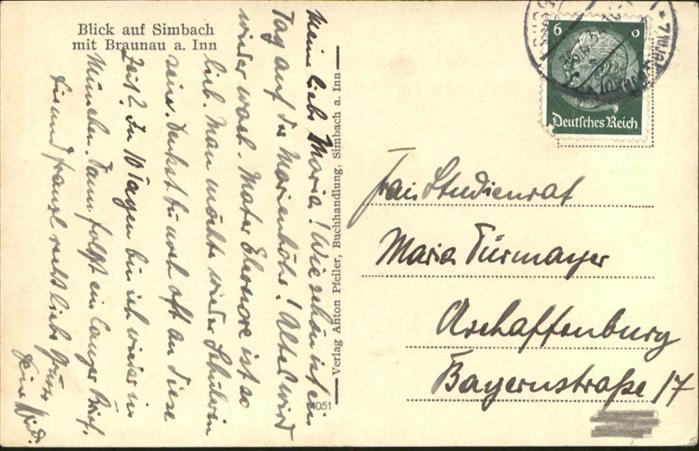 Blick auf Simbach
mit Braunau a. Inn
Meine liebe Maria! Wie schön ist ein
Tag auf der Marienhöhe! Alles wird
wieder wach. Mater Eleonore ist so
lieb. Man möchte wieder Schülerin
sein. Denkst du noch oft an diese
Zeit? In 10 Tagen bin ich wieder in
München. Dann folgt ein langer Brief.
Sei und recht liebe Grüße
Deine
Verlag Anton Pfeiler, Buchhandlung, Simbach a. Inn
4051
6
Deutsches Reich
Frau Studienrat
Maria Türmayer
Aschaffenburg
Bayernstraße 17